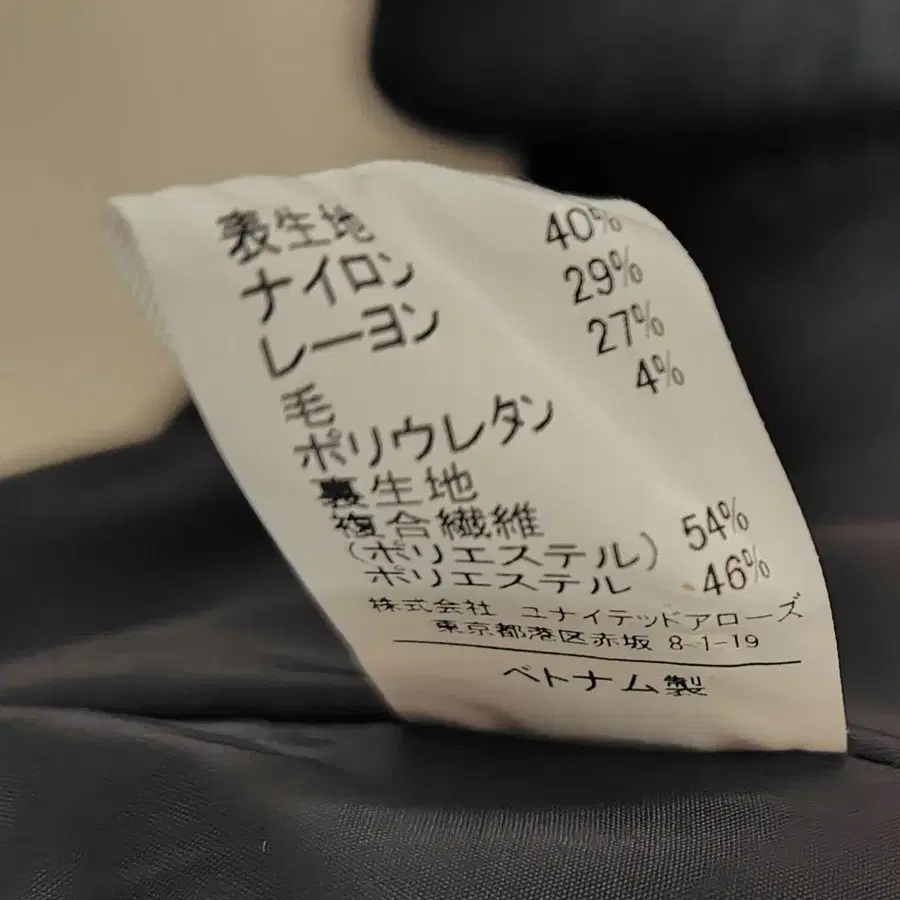 表生地
ナイロン 40%
レーヨン 29%
毛 27%
ポリウレタン 4%
裏生地
複合繊維
(ポリエステル) 54%
ポリエステル 46%
株式会社 ユナイテッドアローズ
東京都港区赤坂 8-1-19
ベトナム製